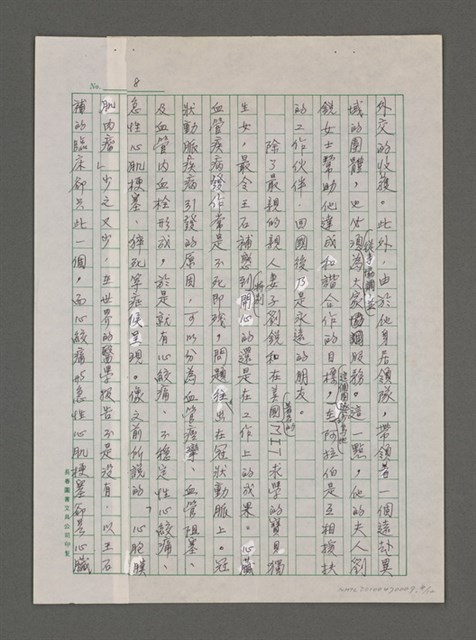 No. 8
外交的收穫。此外，由於他身居領隊，帶領著一個遠赴異
域的團體，也必須為大家協調服務。這一點，他的夫人劉
銳女士幫助他達成和諧合作的目標，在阿拉伯是互相提扶
的工作伙伴，回國後乃是永遠的朋友。
除了最親的親人妻子劉銳和在美國MIT求學的寶貝獨
生女，最令王石補感到開心的還是在工作上的成果。心臟
血管疾病發作常是不死即殘，問題往出在冠狀動脈上。冠
狀動脈疾病引發的原因，可以分為血管痙攣、血管阻塞、
及血管內血栓形成，於是就有心絞痛、不穩定性心絞痛、
急性心肌梗塞、猝死等症候呈現。像文前所說的「心胞膜
肌肉瘤」少之又少，在世界的醫學報告不是沒有，以王石
補的臨床卻只此一個。而心絞痛形急性心肌梗塞卻是心臟
長春圖書文具公司印製